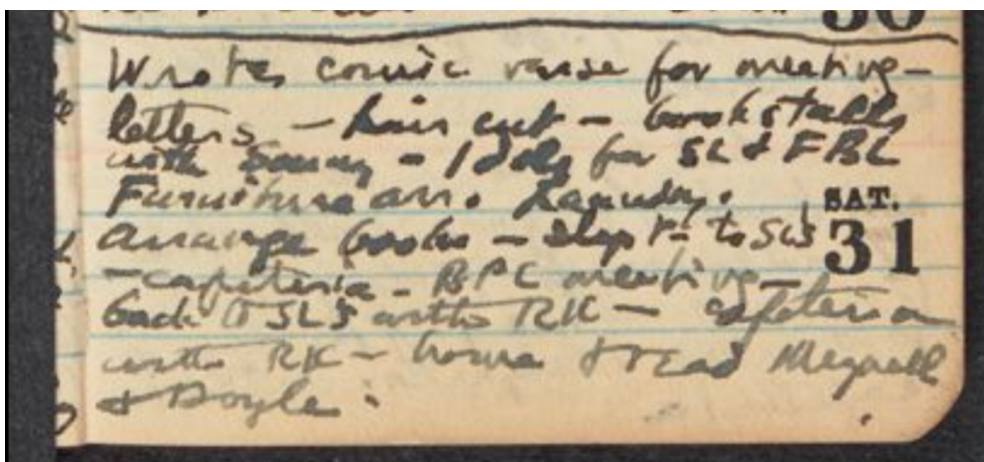 30
Wrote comic verse for meeting –
letters – hair cut – bookstalls
with Sonny – Idols for SL & FBL
Furniture arr. Laundry.
SAT.
arrange books – slept – to SL's
31
– cafeteria – BPC meeting –
back to SL's with RK – cafeteria
with RK – home & read Meynell
& Doyle.